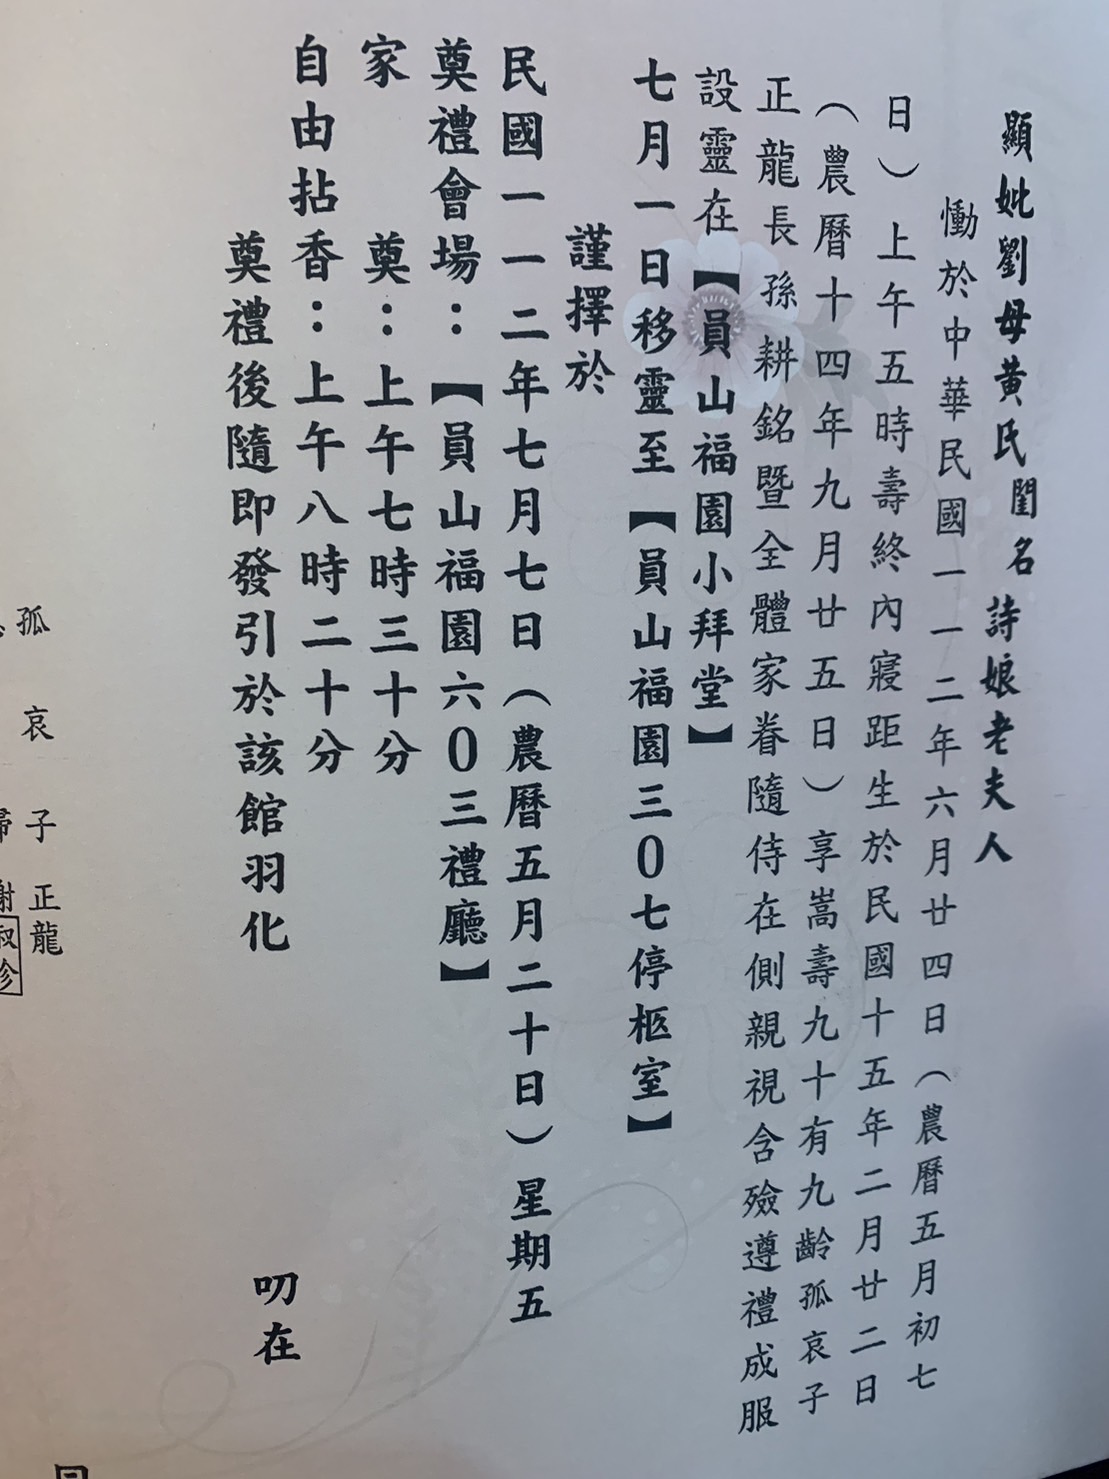 顯妣劉母黃氏閨名詩娘老夫人
慟於中華民國一一二年六月廿四日（農曆五月初七
日）上午五時壽終內寢距生於民國十五年二月廿二日
（農曆十四年九月廿五日）享嵩壽九十有九齡孤哀子
正龍長孫耕銘暨全體家眷隨侍在側親視含殮遵禮成服
設靈在【員山福園小拜堂】
七月一日移靈至【員山福園三0七停柩室】
謹擇於
民國一一二年七月七日（農曆五月二十日）星期五
奠禮會場：【員山福園六0三禮廳】
家奠：上午七時三十分
自由拈香：上午八時二十分
奠禮後隨即發引於該館羽化
叨在
孤哀子正龍